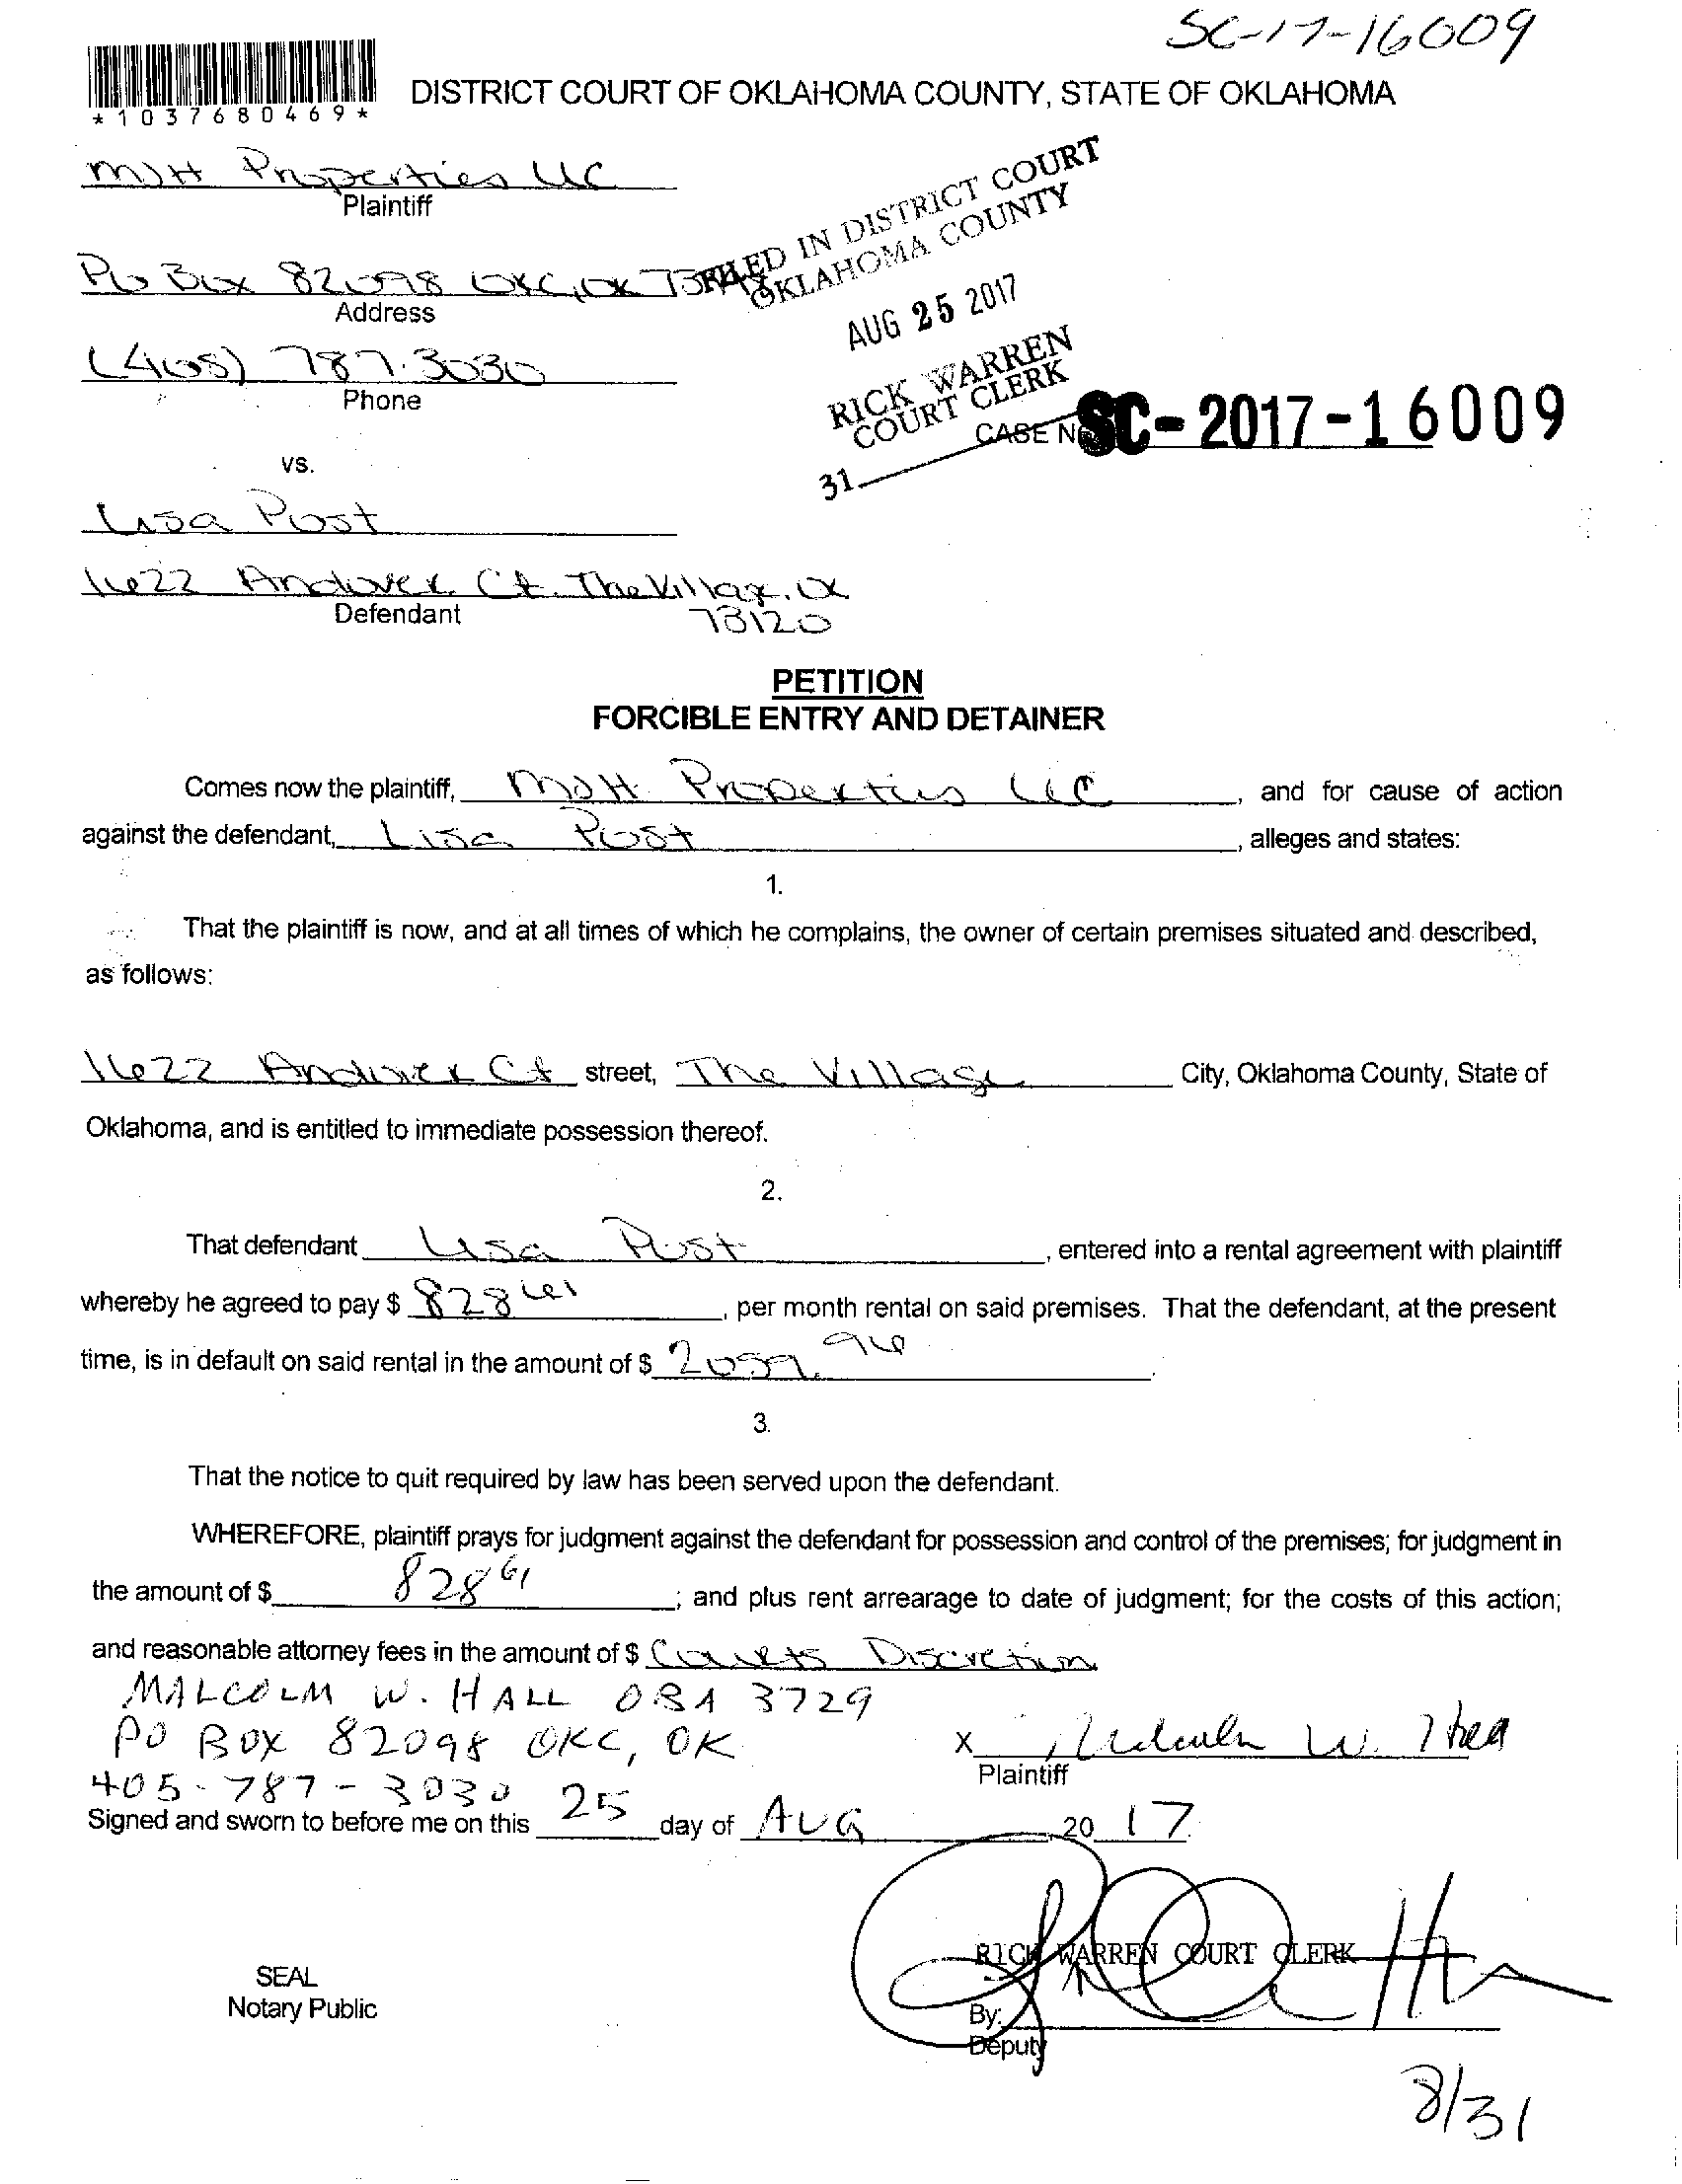 SC-17-16009
*1037680469*
DISTRICT COURT OF OKLAHOMA COUNTY, STATE OF OKLAHOMA
MJH Properties LLC
Plaintiff
FILED IN DISTRICT COURT
OKLAHOMA COUNTY
PO Box 82098 OKC, OK
Address
AUG 25 2017
(405) 787.3030
Phone
RICK WARREN
COURT CLERK
31
CASE NO. SC-2017-16009
vs.
Lisa Post
1622 Andover Ct. The Village, OK
73120
Defendant
PETITION
FORCIBLE ENTRY AND DETAINER
Comes now the plaintiff, MJH Properties LLC, and for cause of action
against the defendant, Lisa Post, alleges and states:
1.
That the plaintiff is now, and at all times of which he complains, the owner of certain premises situated and described,
as follows:
1622 Andover Ct street, The Village City, Oklahoma County, State of
Oklahoma, and is entitled to immediate possession thereof.
2.
That defendant Lisa Post, entered into a rental agreement with plaintiff
whereby he agreed to pay $ 828 61, per month rental on said premises. That the defendant, at the present
time, is in default on said rental in the amount of $ 2059.96.
3.
That the notice to quit required by law has been served upon the defendant.
WHEREFORE, plaintiff prays for judgment against the defendant for possession and control of the premises; for judgment in
the amount of $ 828 61; and plus rent arrearage to date of judgment; for the costs of this action;
and reasonable attorney fees in the amount of $ Courts Discretion
MALCOLM W. HALL OBA 3729
PO BOX 82098 OKC, OK
x Malcolm W. Hall
Plaintiff
405-787-3030
Signed and sworn to before me on this 25 day of AUG, 20 17
RICK WARREN COURT CLERK
SEAL
Notary Public
By:
Deputy
8/31